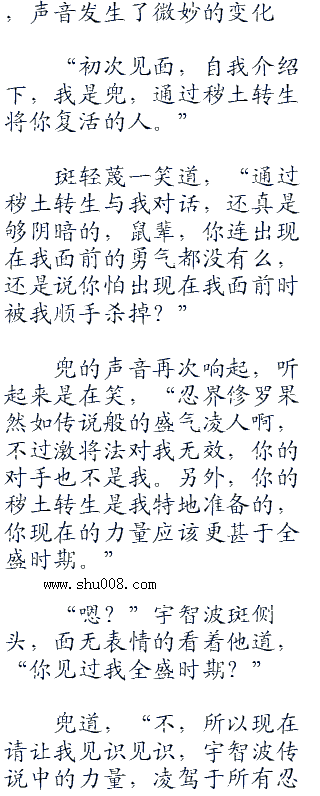 ，声音发生了微妙的变化
“初次见面，自我介绍
下，我是兜，通过秽土转生
将你复活的人。”
斑轻蔑一笑道，“通过
秽土转生与我对话，还真是
够阴暗的，鼠辈，你连出现
在我面前的勇气都没有么，
还是说你怕出现在我面前时
被我顺手杀掉？”
兜的声音再次响起，听
起来是在笑，“忍界修罗果
然如传说般的盛气凌人啊，
不过激将法对我无效，你的
对手也不是我。另外，你的
秽土转生是我特地准备的，
你现在的力量应该更甚于全
盛时期。”
www.shu008.com
“嗯？”宇智波斑侧
头，面无表情的看着他道，
“你见过我全盛时期？”
兜道，“不，所以现在
请让我见识见识，宇智波传
说中的力量，凌驾于所有忍